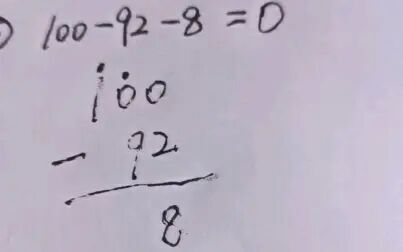 ) 100-92-8=0
100
- 92
8